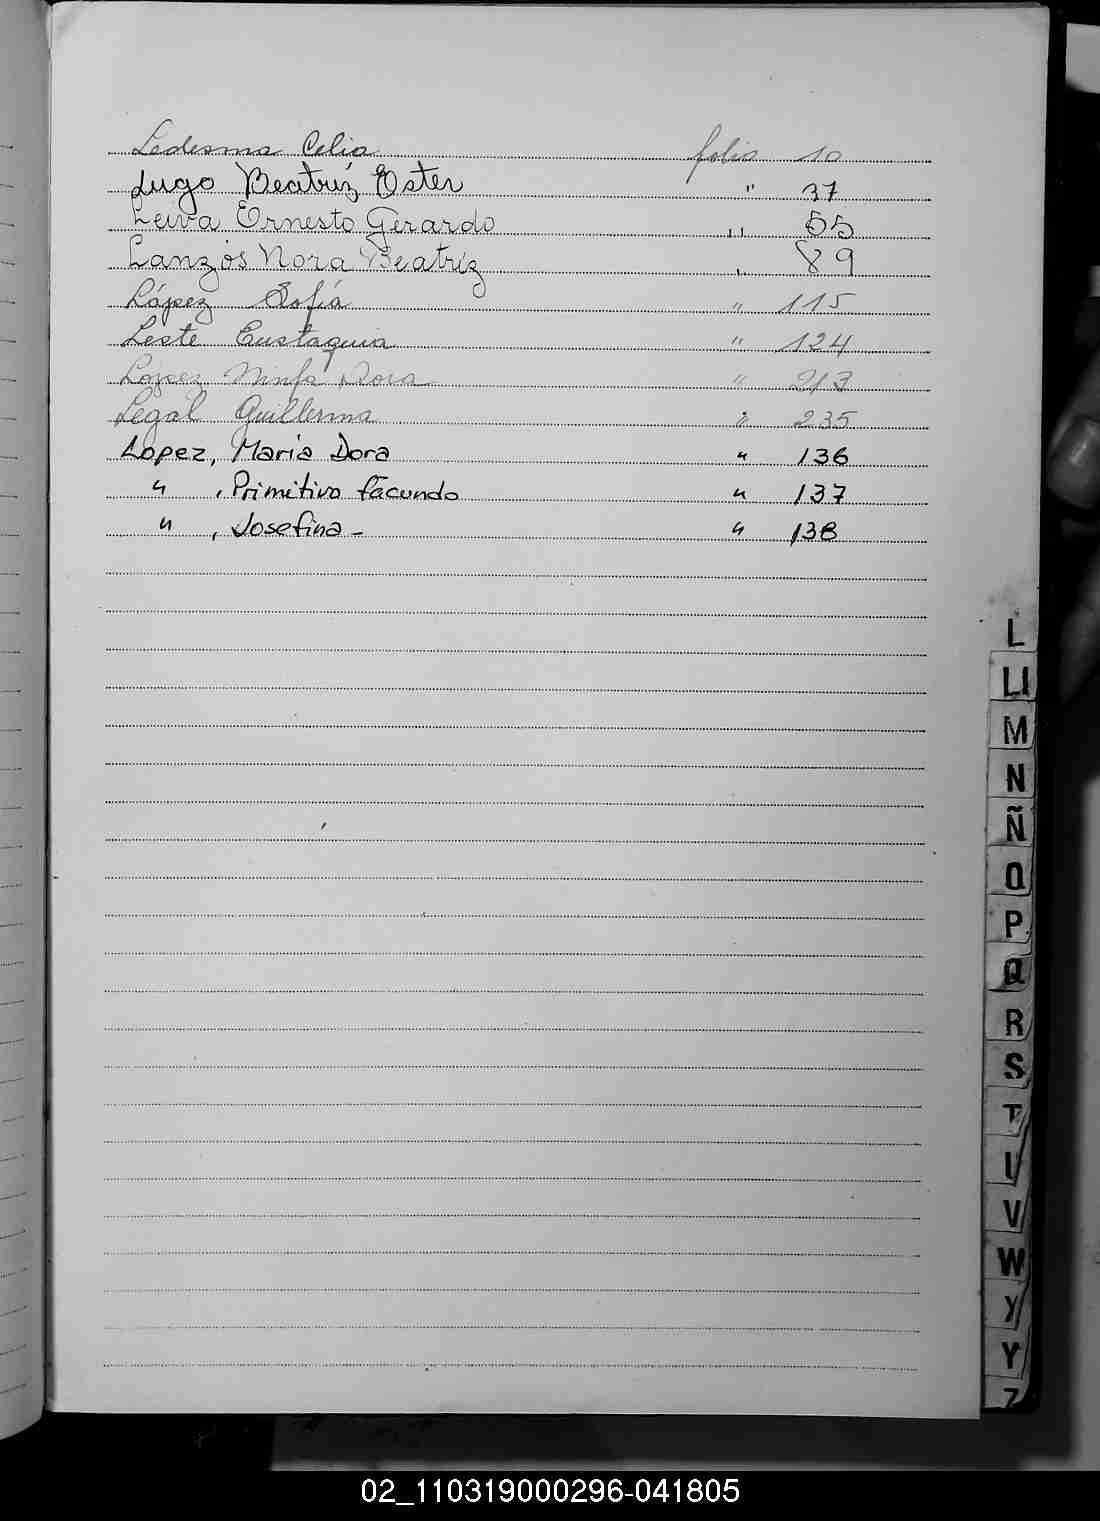 Ledesma Celia folio 10
Lugo Beatríz Ester " 37
Leiva Ernesto Gerardo " 55
Lanzós Nora Beatríz " 89
López Sofía " 115
Leste Eustaquia " 124
López Ninfa Dora " 213
Legal Guillerma " 235
Lopez, María Dora " 136
" , Primitivo facundo " 137
" , Josefina - " 138
L
Ll
M
N
Ñ
O
P
Q
R
S
T
U
V
W
Y
Z
02_110319000296-041805